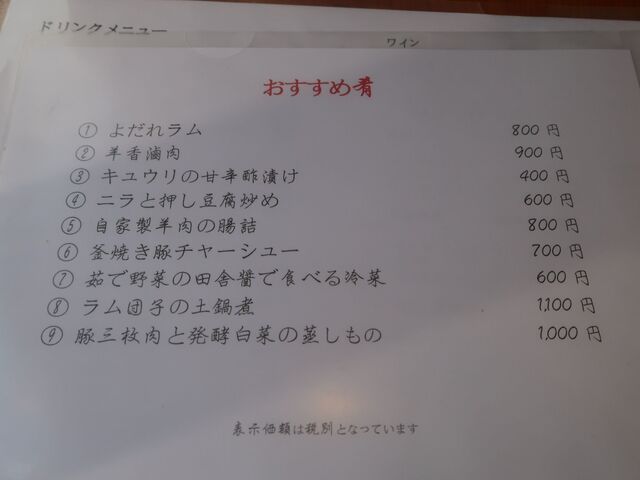 ドリンクメニュー
ワイン
おすすめ肴
① よだれラム 800 円
② 羊香滷肉 900 円
③ キュウリの甘辛酢漬け 400 円
④ ニラと押し豆腐炒め 600 円
⑤ 自家製羊肉の腸詰 800 円
⑥ 釜焼き豚チャーシュー 700 円
⑦ 茹で野菜の田舎醤で食べる冷菜 600 円
⑧ ラム団子の土鍋煮 1,100 円
⑨ 豚三枚肉と発酵白菜の蒸しもの 1,000 円
表示価額は税別となっています